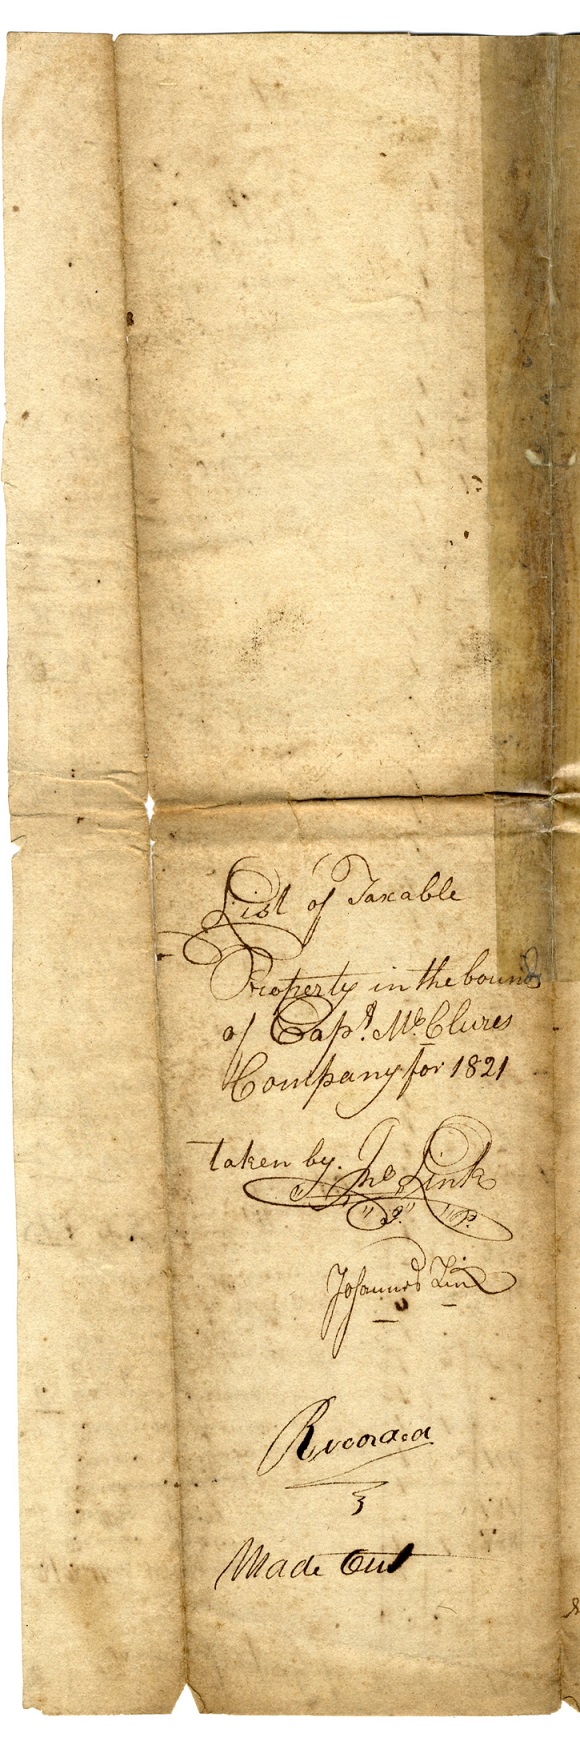 List of Taxable
Property in the bounds
of Capt. Mc.Clures
Company for 1821
taken by. Jno Link
"J." "P.
Johannes Link
Recorded
Made Out